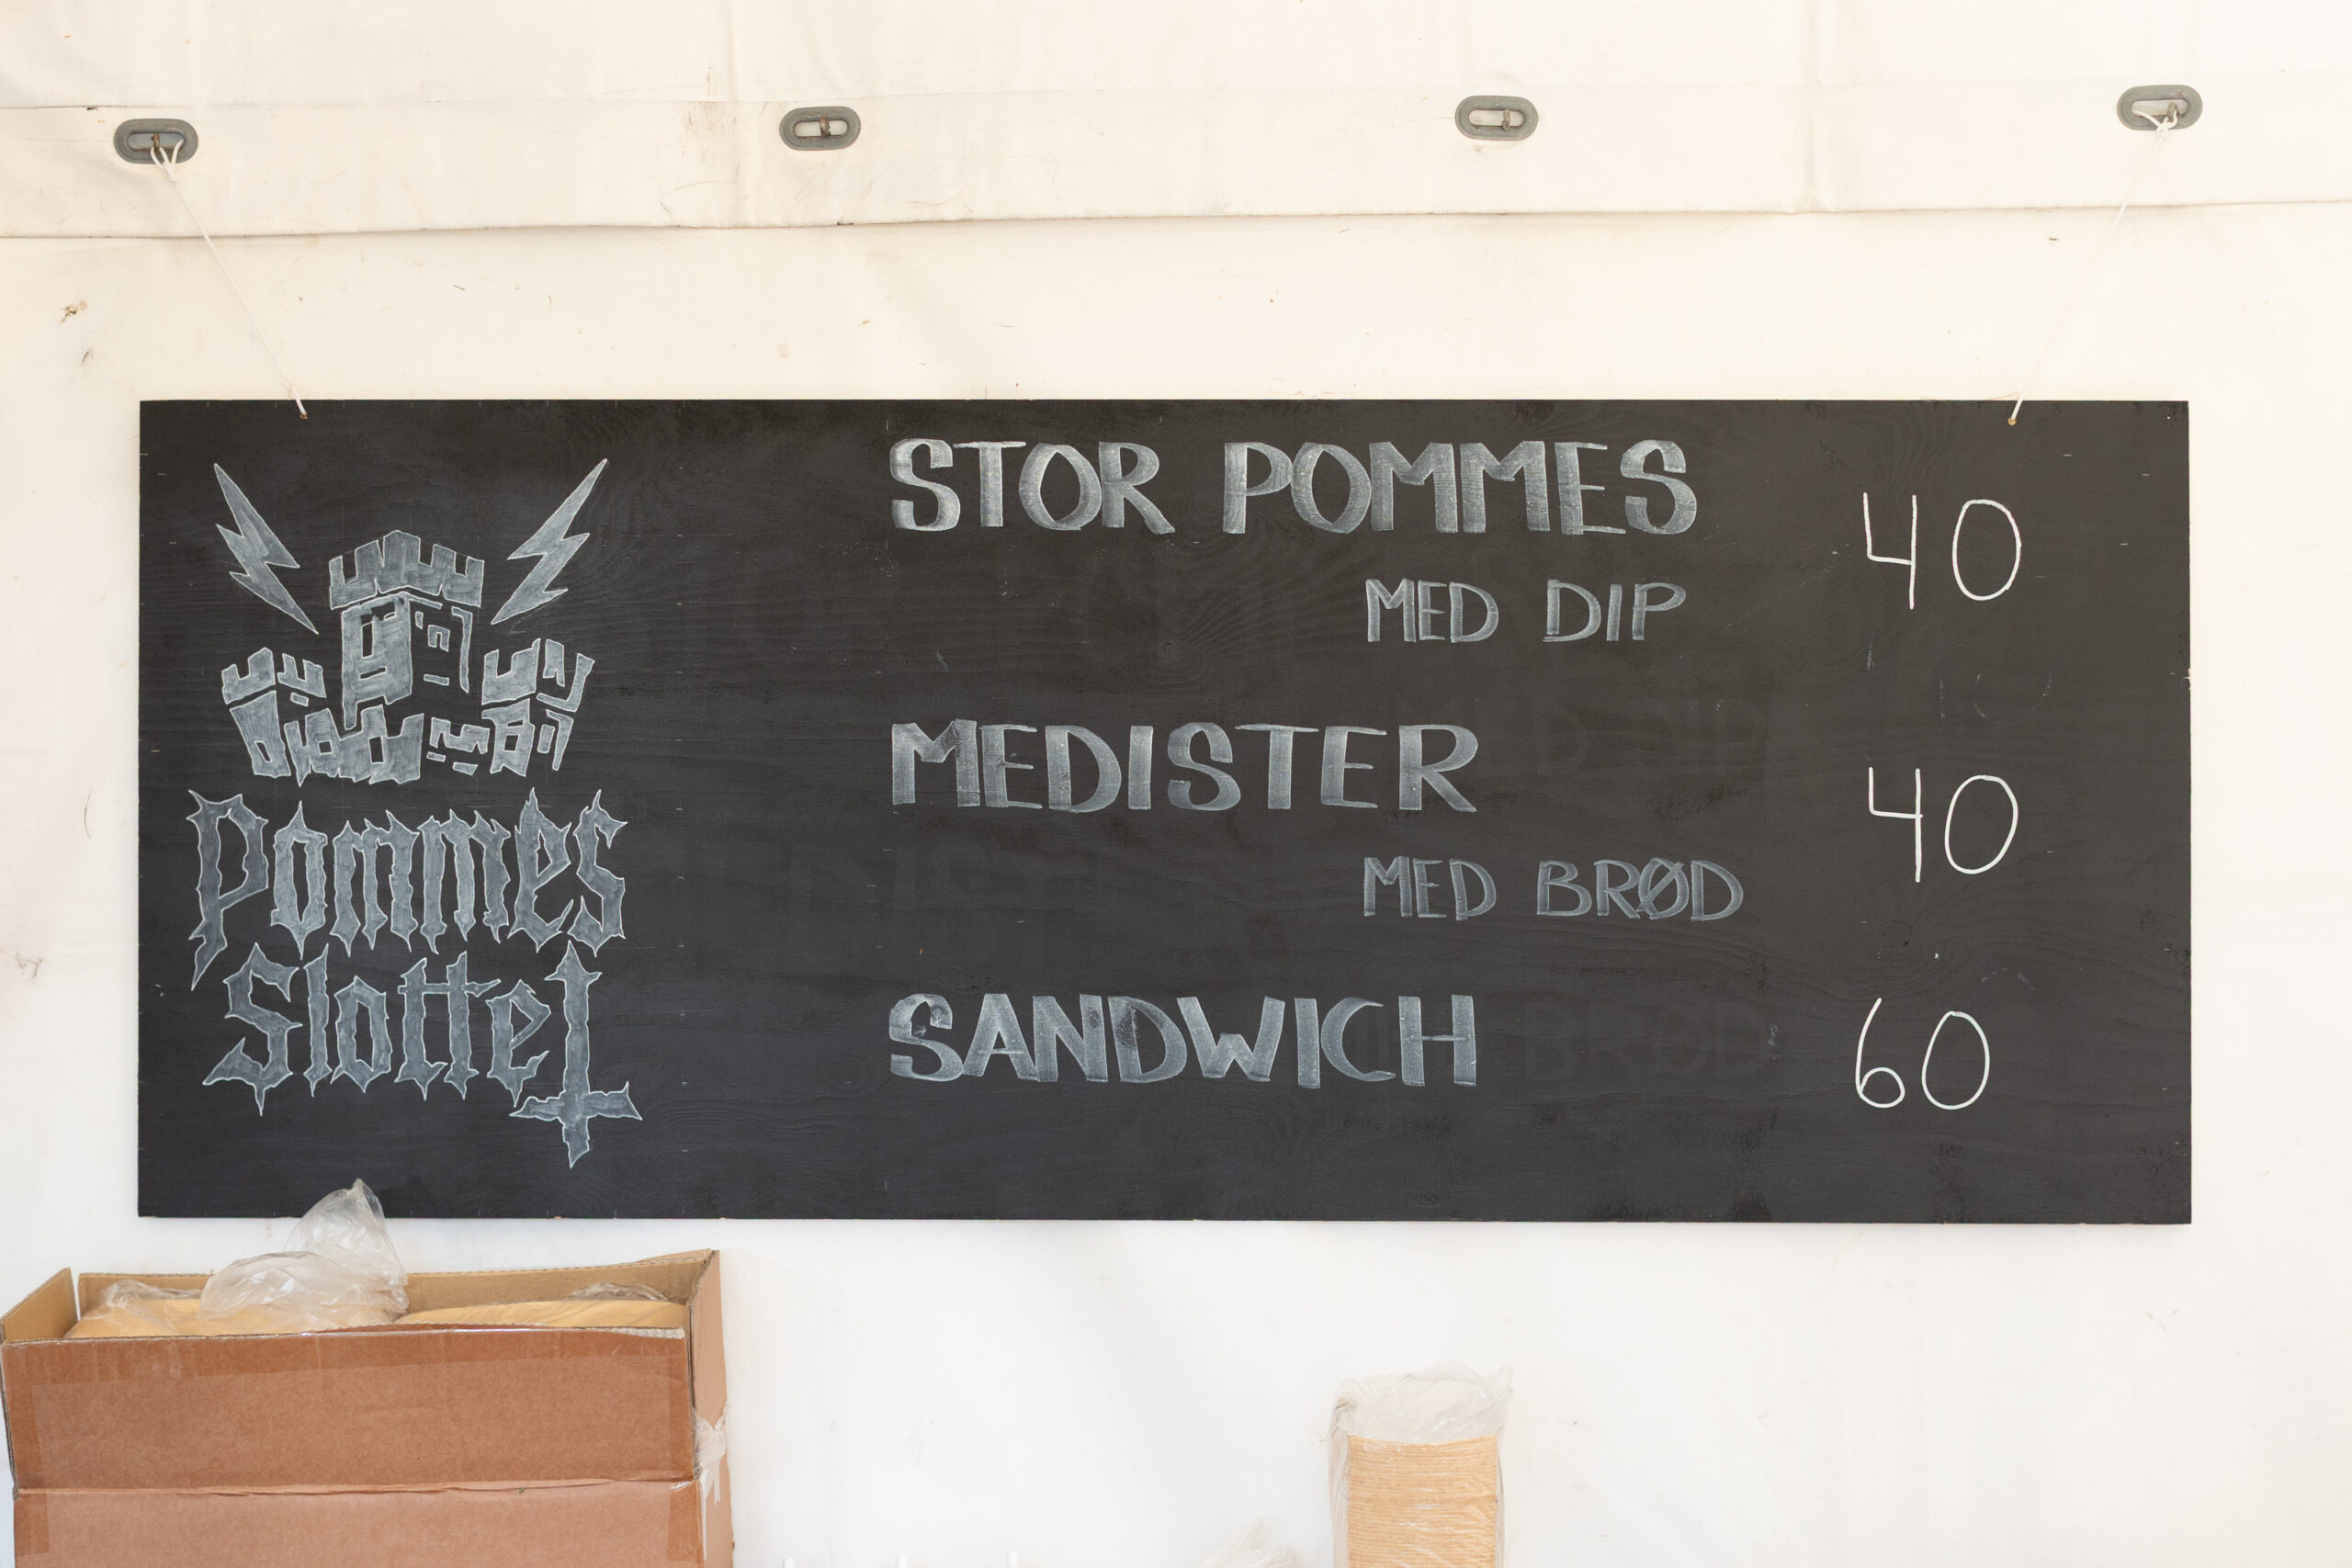 Pommes
Slottet
STOR POMMES 40
MED DIP
MEDISTER 40
MED BRØD
SANDWICH 60